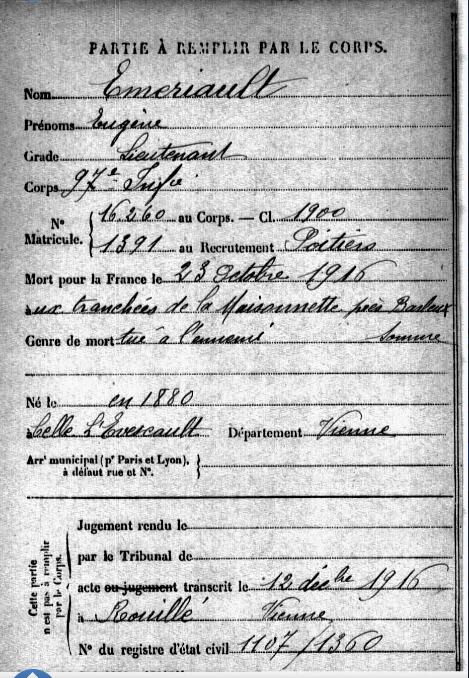 PARTIE À REMPLIR PAR LE CORPS.
Nom Emeriault
Prénoms Eugène
Grade Lieutenant
Corps 97e Infie
No Matricule. { 16.260 au Corps. — Cl. 1900
1391 au Recrutement Poitiers
Mort pour la France le 23 octobre 1916
aux tranchées de la Maisonnette près Barleux
Genre de mort tué à l'ennemi Somme
Né le en 1880
à Celle L'Evescault Département Vienne
Arrt municipal (pr Paris et Lyon), à défaut rue et No. }
Cette partie n'est pas à remplir par le Corps.
Jugement rendu le
par le Tribunal de
acte ou jugement transcrit le 12 décbre 1916
à Rouillé Vienne
No du registre d'état civil 1107/1360